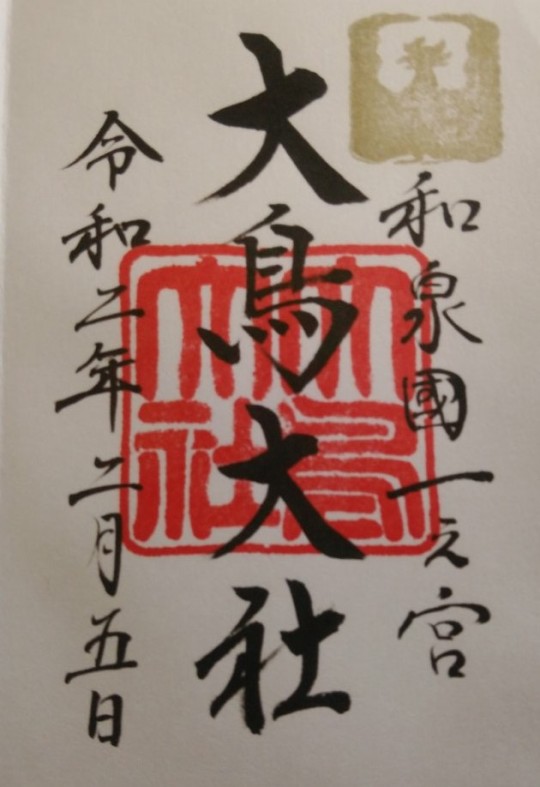 和泉國一之宮
大鳥大社
令和二年二月五日
大鳥大社